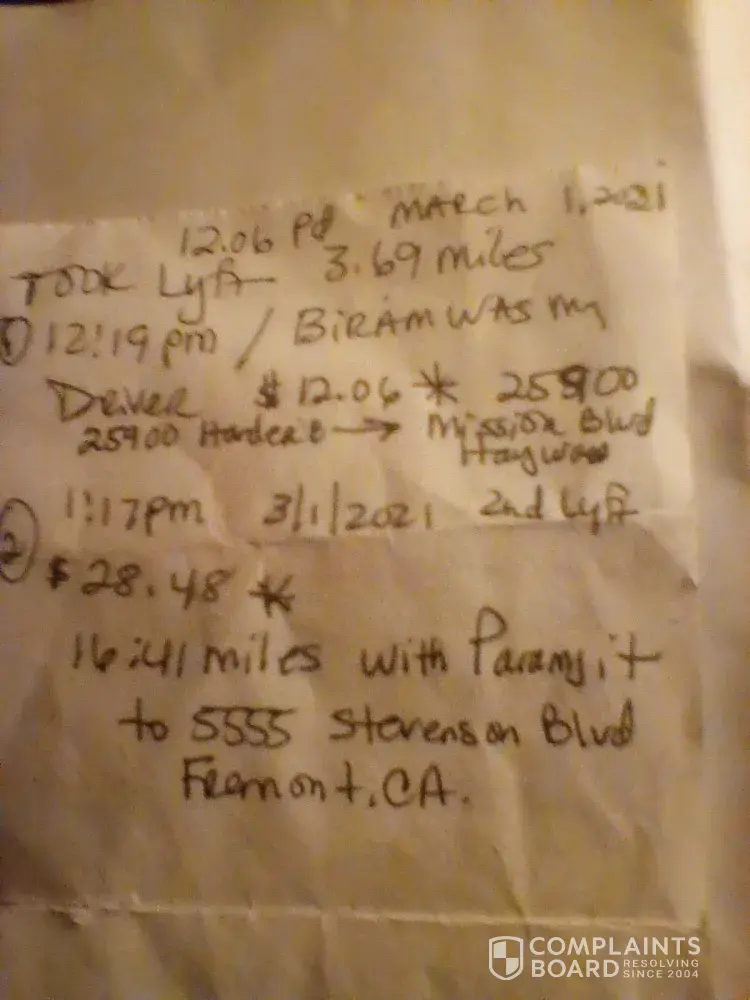 12.06 Pd MARCH 1, 2021
TOOK Lyft 3.69 miles
① 12:19 pm / BiRAM WAS my
DRiVER $ 12.06 * 25900
25900 → Mission Blvd
Hayward
② 1:17pm 3/1/2021 2nd Lyft
$ 28.48 *
16:41 miles with Paramjit
to 5555 Stevenson Blvd
Fremont, CA.
COMPLAINTS
BOARD RESOLVING
SINCE 2004